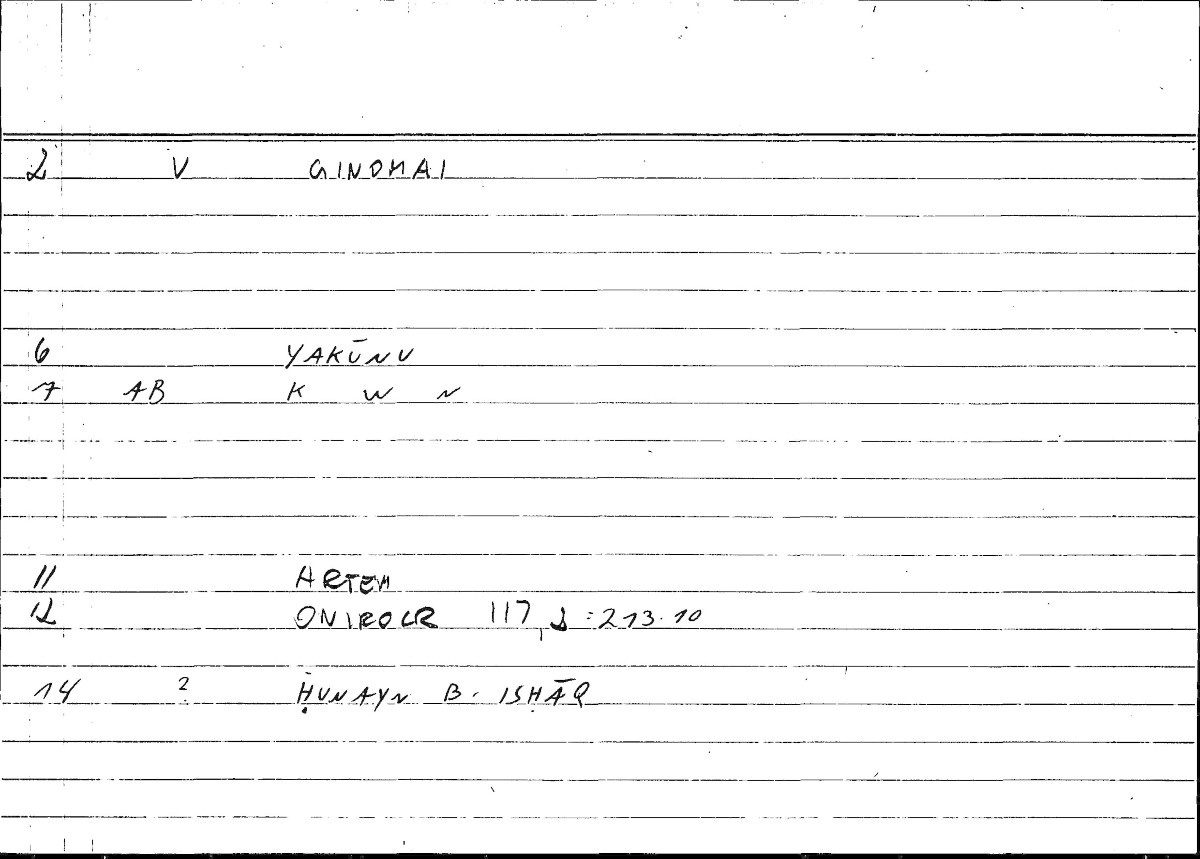 2 V GINOMAI
6 YAKŪNU
7 AB K W N
11 ARTEM
12 ONIROCR 117, = 213.10
14 ? ḤUNAYN B. ISḤĀQ